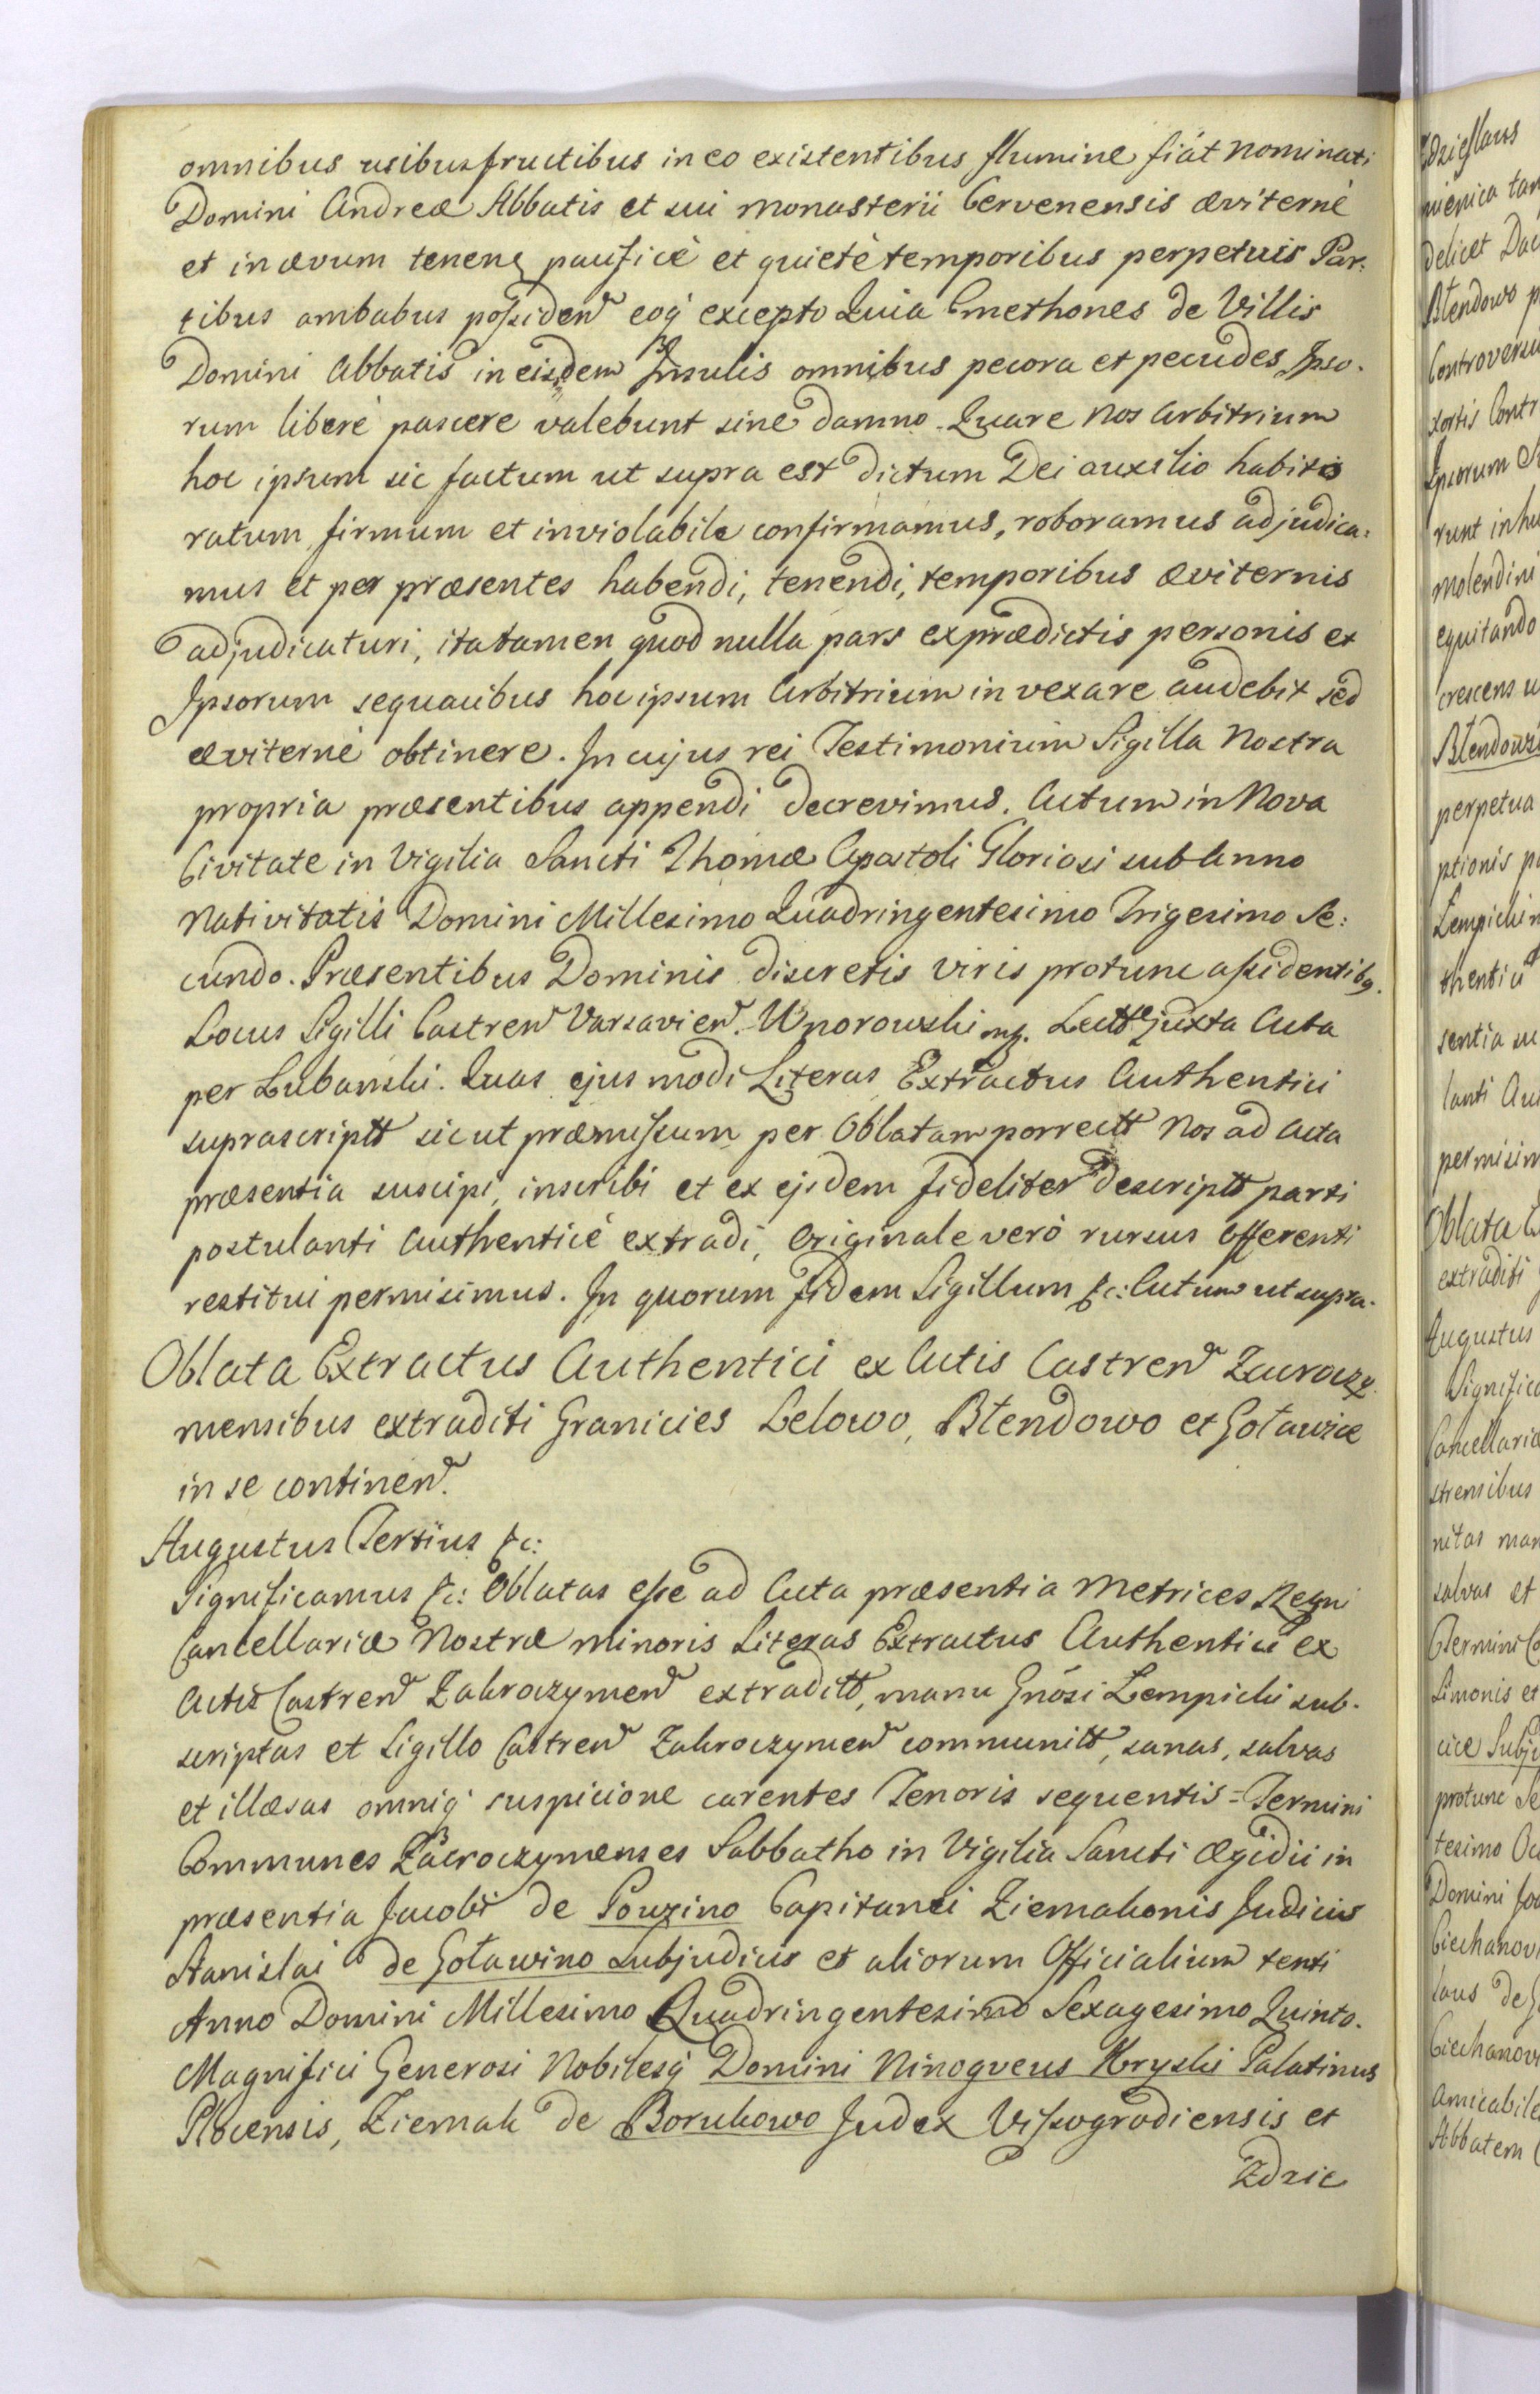 omnibus usibusfructibus in eo existentibus flumine fiát nominati
Domini Andreæ Abbatis et sui monasterii Cervenensis æviterne
et in ævum tenen pacificè et quietè temporibus perpetuis Par:
tibus ambabus possiden eoq excepto Quia Cmethones de Villis
Domini Abbatis in eisdem Insulis omnibus pecora et pecudes Ipso-
rum liberè pascere valebunt sine damno. Quare nos Arbitrium
hoc ipsum sic factum ut supra est dictum Dei auxilio habitis
ratum firmum et inviolabile confirmamus, roboramus adjudica:
mus et per præsentes habendi, tenendi, temporibus æviternis
adjudicaturi, ita tamen quod nulla pars ex prædictis personis et
Ipsorum sequacibus hoc ipsum Arbitrium in vexare audebit sed
æviternè obtinere. In cujus rei Testimonium Sigilla Nostra
propria præsentibus appendi decrevimus. Actum in Nova
Civitate in Vigilia Sancti Thomæ Apostoli Gloriosi sub Anno
Nativitatis Domini Millesimo Quadringentesimo Trigesimo Se:
cundo. Præsentibus Dominis discretis viris protunc assidentibq.
Locus Sigilli Castren Varsavien. Unorowski mp. Lectt juxta Acta
per Lubanski. Quas ejusmodi Literas Extractus Authentici
suprascriptt sicut præmissum per Oblatam porrectt Nos ad Acta
præsentia suscipi, inscribi et ex ejsdem fideliter descriptt parti
postulanti Authenticè extradi, Originale verò rursus Offerenti
restitui permisimus. In quorum fidem Sigillum &c: Actum ut supra.
Oblata Extractus Authentici ex Actis Castren Zacroczy
mensibus extraditi Granicies Lelowo, Błendowo et Goławice
in se continen.
Augustus Tertius &c:
Significamus &c: Oblatas esse ad Acta præsentia Metrices Regni
Cancellariæ Nostræ minoris Literas Extractus Authentici ex
Actis Castren Zakroczymen extraditt, manu Gnősi Lempicki sub-
scriptas et Sigillo Castren Zakroczymen communitt, sanas, salvas
et illæsas omniq suspicione carentes Tenoris sequentis = Termini
Communes Zacroczymenses Sabbatho in Vigilia Sancti Ægidii in
præsentia Jacobi de Gouzino Capitanei Ziemakonis Judicis
Stanislai de Goławino Subjudicis et aliorum Officialium tenti
Anno Domini Millesimo Quadringentesimo Sexagesimo Quinto.
Magnifici Generosi Nobilesq Domini Ninogveus Kryski Palatinus
Plocensis, Ziemak de Borukowo Judex Vissogradiensis et
Zdzie